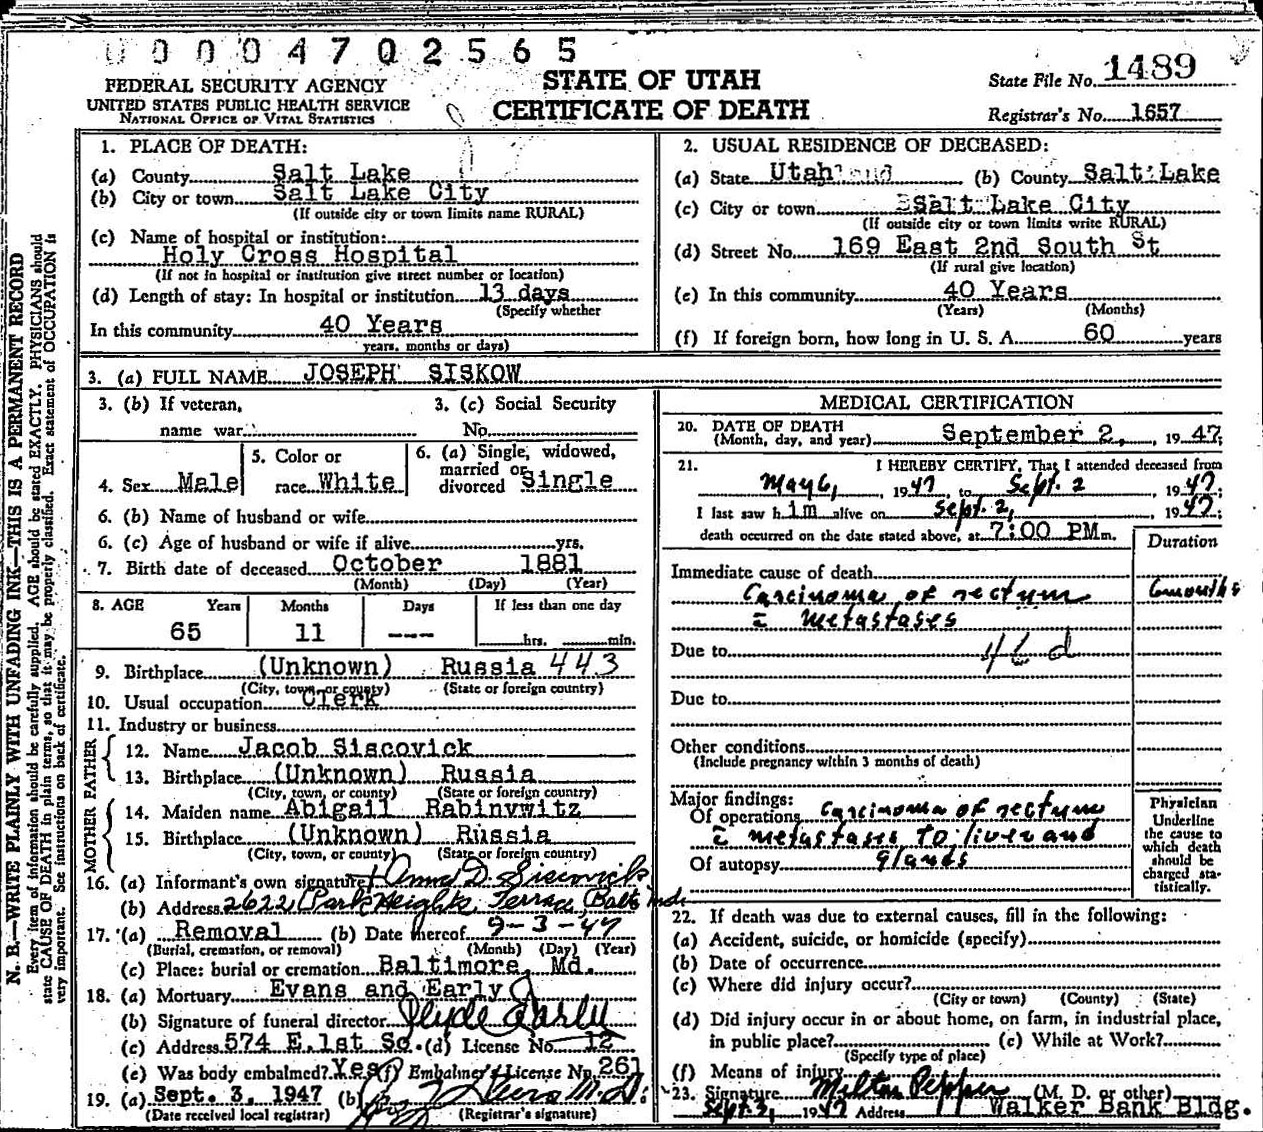 0 0 0 0 4 7 0 2 5 6 5
FEDERAL SECURITY AGENCY
UNITED STATES PUBLIC HEALTH SERVICE
NATIONAL OFFICE OF VITAL STATISTICS
STATE OF UTAH
CERTIFICATE OF DEATH
State File No. 1489
Registrar's No. 1657
N. B.—WRITE PLAINLY WITH UNFADING INK—THIS IS A PERMANENT RECORD
Every item of information should be carefully supplied. AGE should be stated EXACTLY. PHYSICIANS should
state CAUSE OF DEATH in plain terms, so that it may be properly classified. Exact statement of OCCUPATION is
very important. See instructions on back of certificate.
1. PLACE OF DEATH:
(a) County Salt Lake
(b) City or town Salt Lake City
(If outside city or town limits name RURAL)
(c) Name of hospital or institution:
Holy Cross Hospital
(If not in hospital or institution give street number or location)
(d) Length of stay: In hospital or institution 13 days
(Specify whether
In this community 40 Years
years, months or days)
2. USUAL RESIDENCE OF DECEASED:
(a) State Utah (b) County Salt Lake
(c) City or town Salt Lake City
(If outside city or town limits write RURAL)
(d) Street No. 169 East 2nd South St
(If rural give location)
(e) In this community 40 Years
(Years) (Months)
(f) If foreign born, how long in U. S. A. 60 years
3. (a) FULL NAME JOSEPH SISKOW
3. (b) If veteran, 3. (c) Social Security
name war No.
4. Sex Male
5. Color or
race White
6. (a) Single, widowed,
married or
divorced Single
6. (b) Name of husband or wife
6. (c) Age of husband or wife if alive yrs.
7. Birth date of deceased October 1881
(Month) (Day) (Year)
8. AGE Years Months Days If less than one day
65 11 --- hrs. min.
9. Birthplace (Unknown) Russia 443
(City, town, or county) (State or foreign country)
10. Usual occupation Clerk
11. Industry or business
FATHER
12. Name Jacob Siscovick
13. Birthplace (Unknown) Russia
(City, town, or county) (State or foreign country)
MOTHER
14. Maiden name Abigail Rabinvwitz
15. Birthplace (Unknown) Russia
(City, town, or county) (State or foreign country)
16. (a) Informant's own signature Anna D. Siscovick
(b) Address 2622 Park Heights Terrace, Balto Md.
17. (a) Removal (b) Date thereof 9-3-47
(Burial, cremation, or removal) (Month) (Day) (Year)
(c) Place: burial or cremation Baltimore, Md.
18. (a) Mortuary Evans and Early
(b) Signature of funeral director Clyde Early
(c) Address 574 E.1st So. (d) License No. 12
(e) Was body embalmed? Yes (f) Embalmer's License No. 261
19. (a) Sept. 3, 1947 (b) M.D.
(Date received local registrar) (Registrar's signature)
MEDICAL CERTIFICATION
20. DATE OF DEATH
(Month, day, and year) September 2, 1947;
21. I HEREBY CERTIFY, That I attended deceased from
May 6, 1947 to Sept. 2, 1947;
I last saw him alive on Sept. 2, 1947;
death occurred on the date stated above, at 7:00 PM m.
Duration
Immediate cause of death
Carcinoma of rectum 6 months
c̄ metastases
Due to 46 d
Due to
Other conditions
(Include pregnancy within 3 months of death)
Major findings:
Of operations carcinoma of rectum
c̄ metastases to liver and
Of autopsy glands
Physician
Underline
the cause to
which death
should be
charged sta-
tistically.
22. If death was due to external causes, fill in the following:
(a) Accident, suicide, or homicide (specify)
(b) Date of occurrence
(c) Where did injury occur?
(City or town) (County) (State)
(d) Did injury occur in or about home, on farm, in industrial place,
in public place? (e) While at Work?
(Specify type of place)
(f) Means of injury
23. Signature Milton Pepper (M. D. or other)
Sept 3, 1947 Address Walker Bank Bldg.